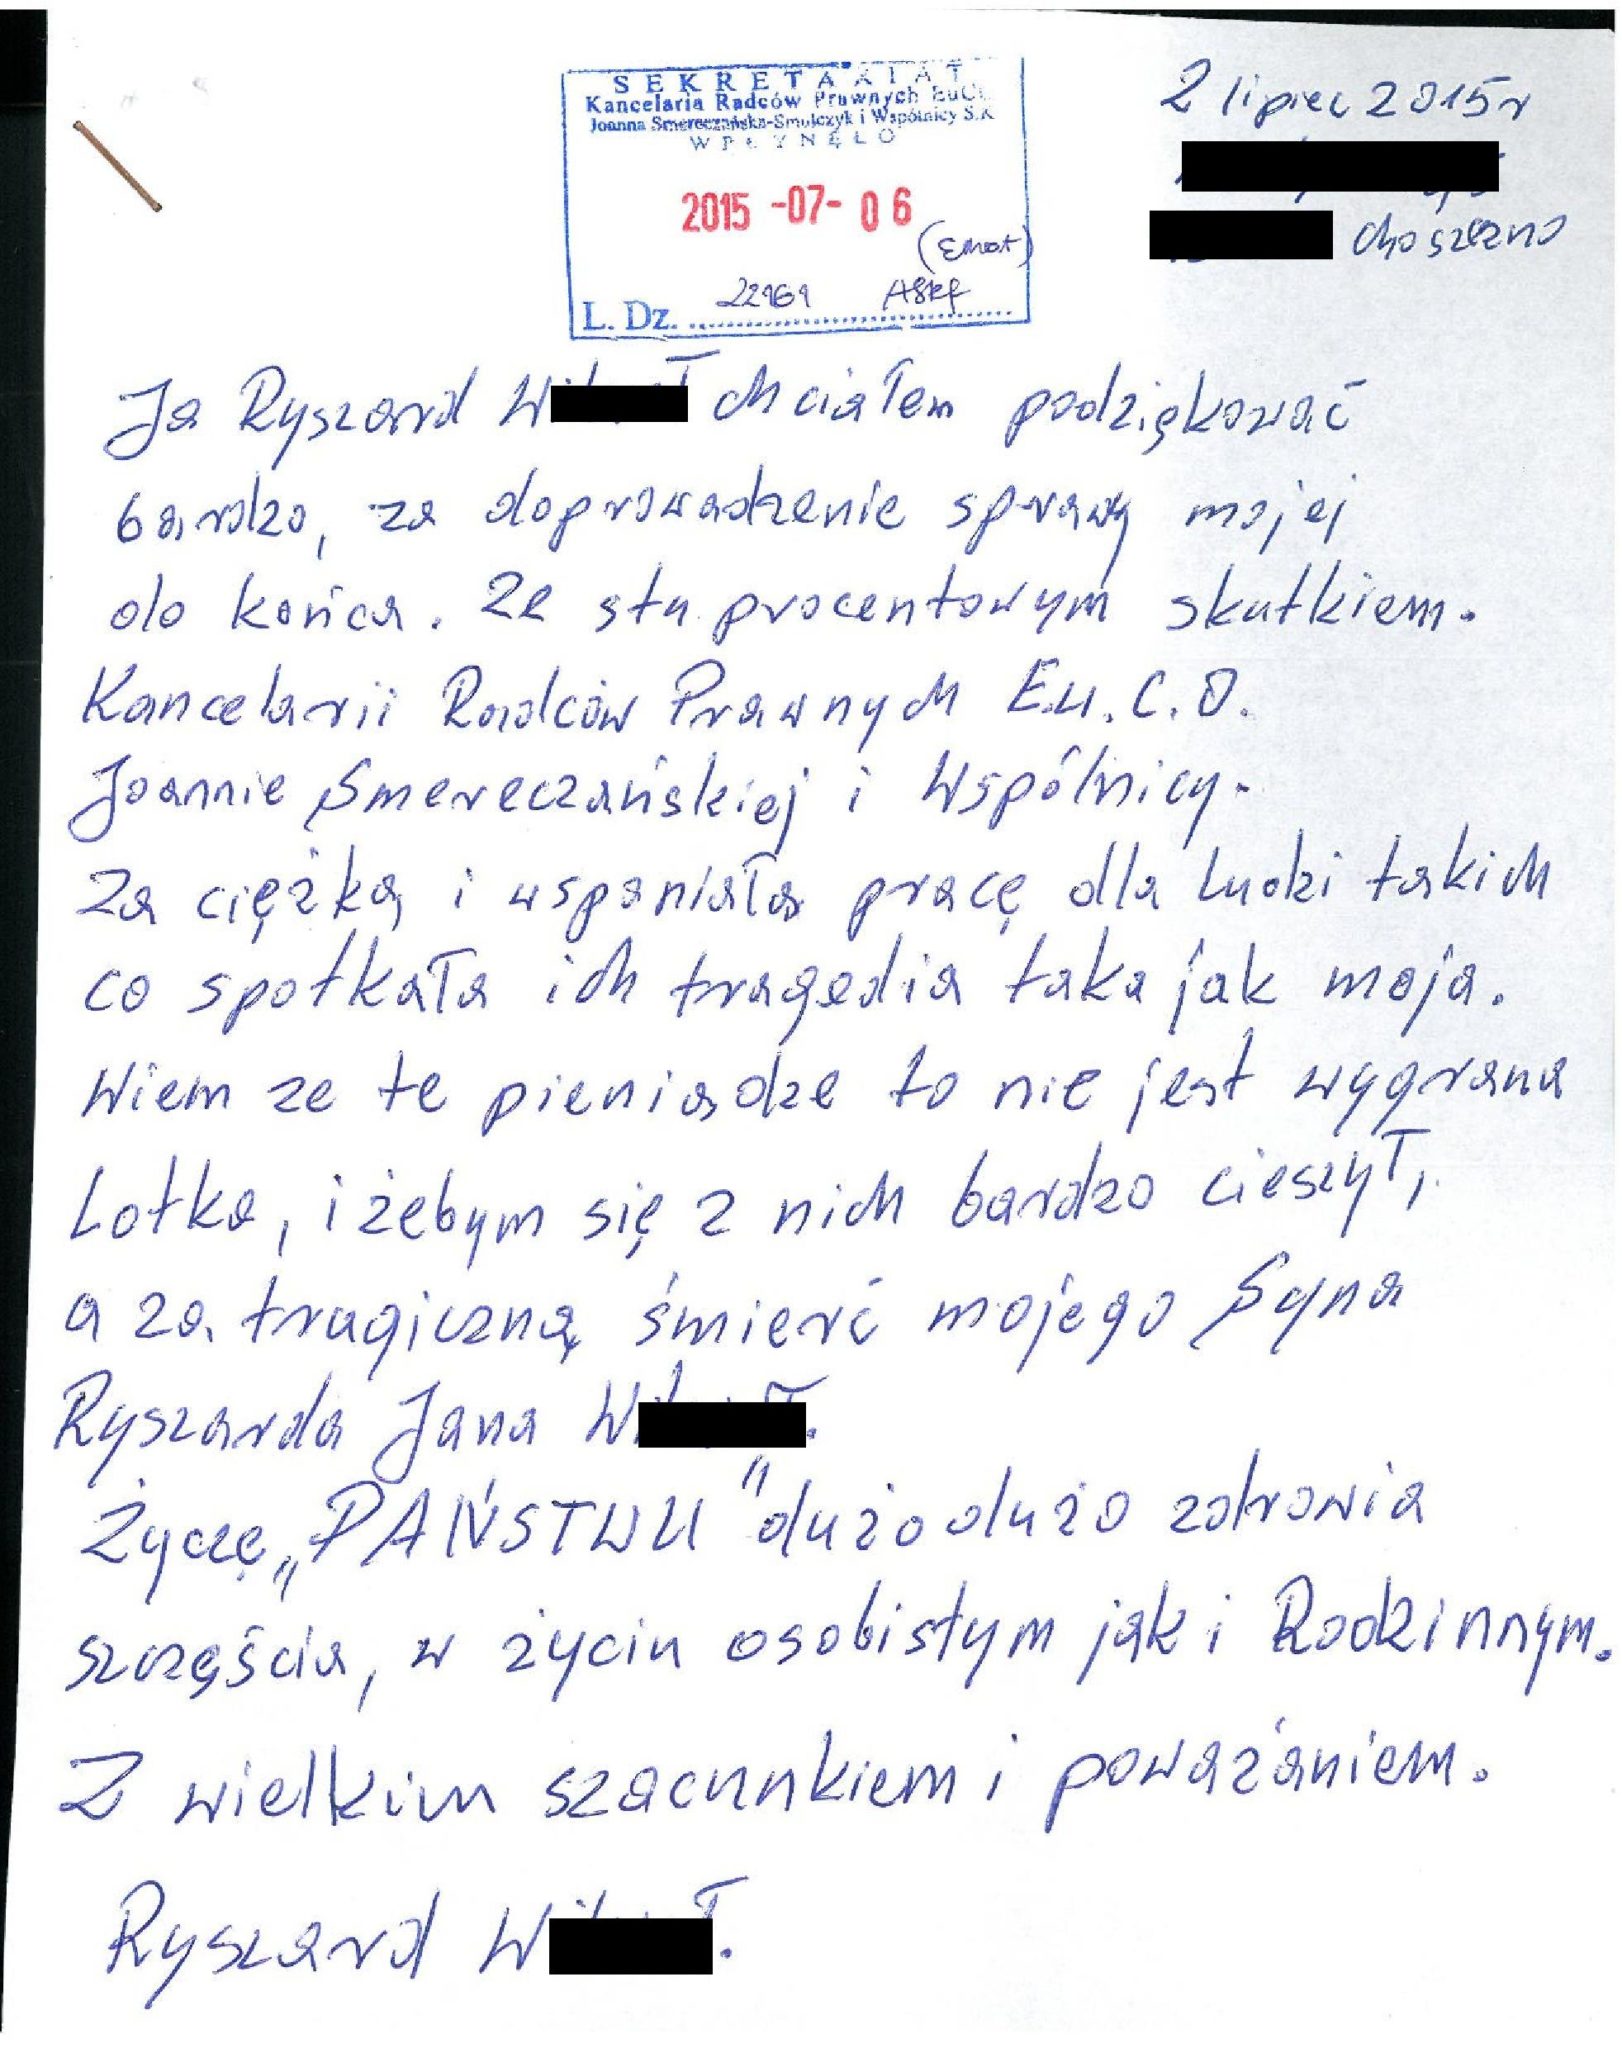 SEKRETARIAT
Kancelaria Radców Prawnych EuCO
Joanna Smereczańska-Smulczyk i Wspólnicy S.K
WPŁYNĘŁO
2015 -07- 06
22161
L. Dz.
2 lipiec 2015r
Choszczno
Ja Ryszard W chciałem podziękować
bardzo, za doprowadzenie sprawy mojej
do końca. Ze stu procentowym skutkiem.
Kancelarii Radców Prawnych E.u.C.O.
Joannie Smereczańskiej i Wspólnicy.
Za ciężką i wspaniała pracę dla ludzi takich
co spotkała ich tragedia taka jak moja.
Wiem ze te pieniądze to nie jest wygrana
Lotka, i żebym się z nich bardzo cieszył,
a za tragiczną śmierć mojego Syna
Ryszarda Jana W.
Życzę „PAŃSTWU" dużo dużo zdrowia
szczęścia, w życiu osobistym jak i Rodzinnym.
Z wielkim szacunkiem i poważaniem.
Ryszard W.